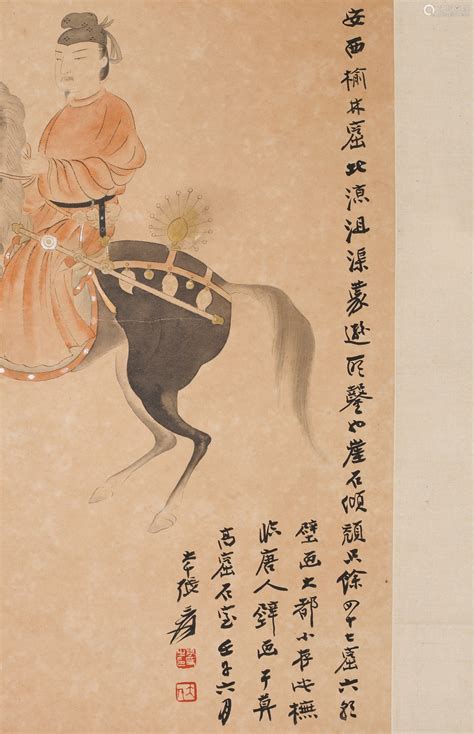 安西榆林窟北涼沮渠蒙遜所鑿也崖石傾頹只餘四十七窟六朝
壁画大都不存此橅
临唐人壁画于莫
高窟石室壬子六月
大千張爰